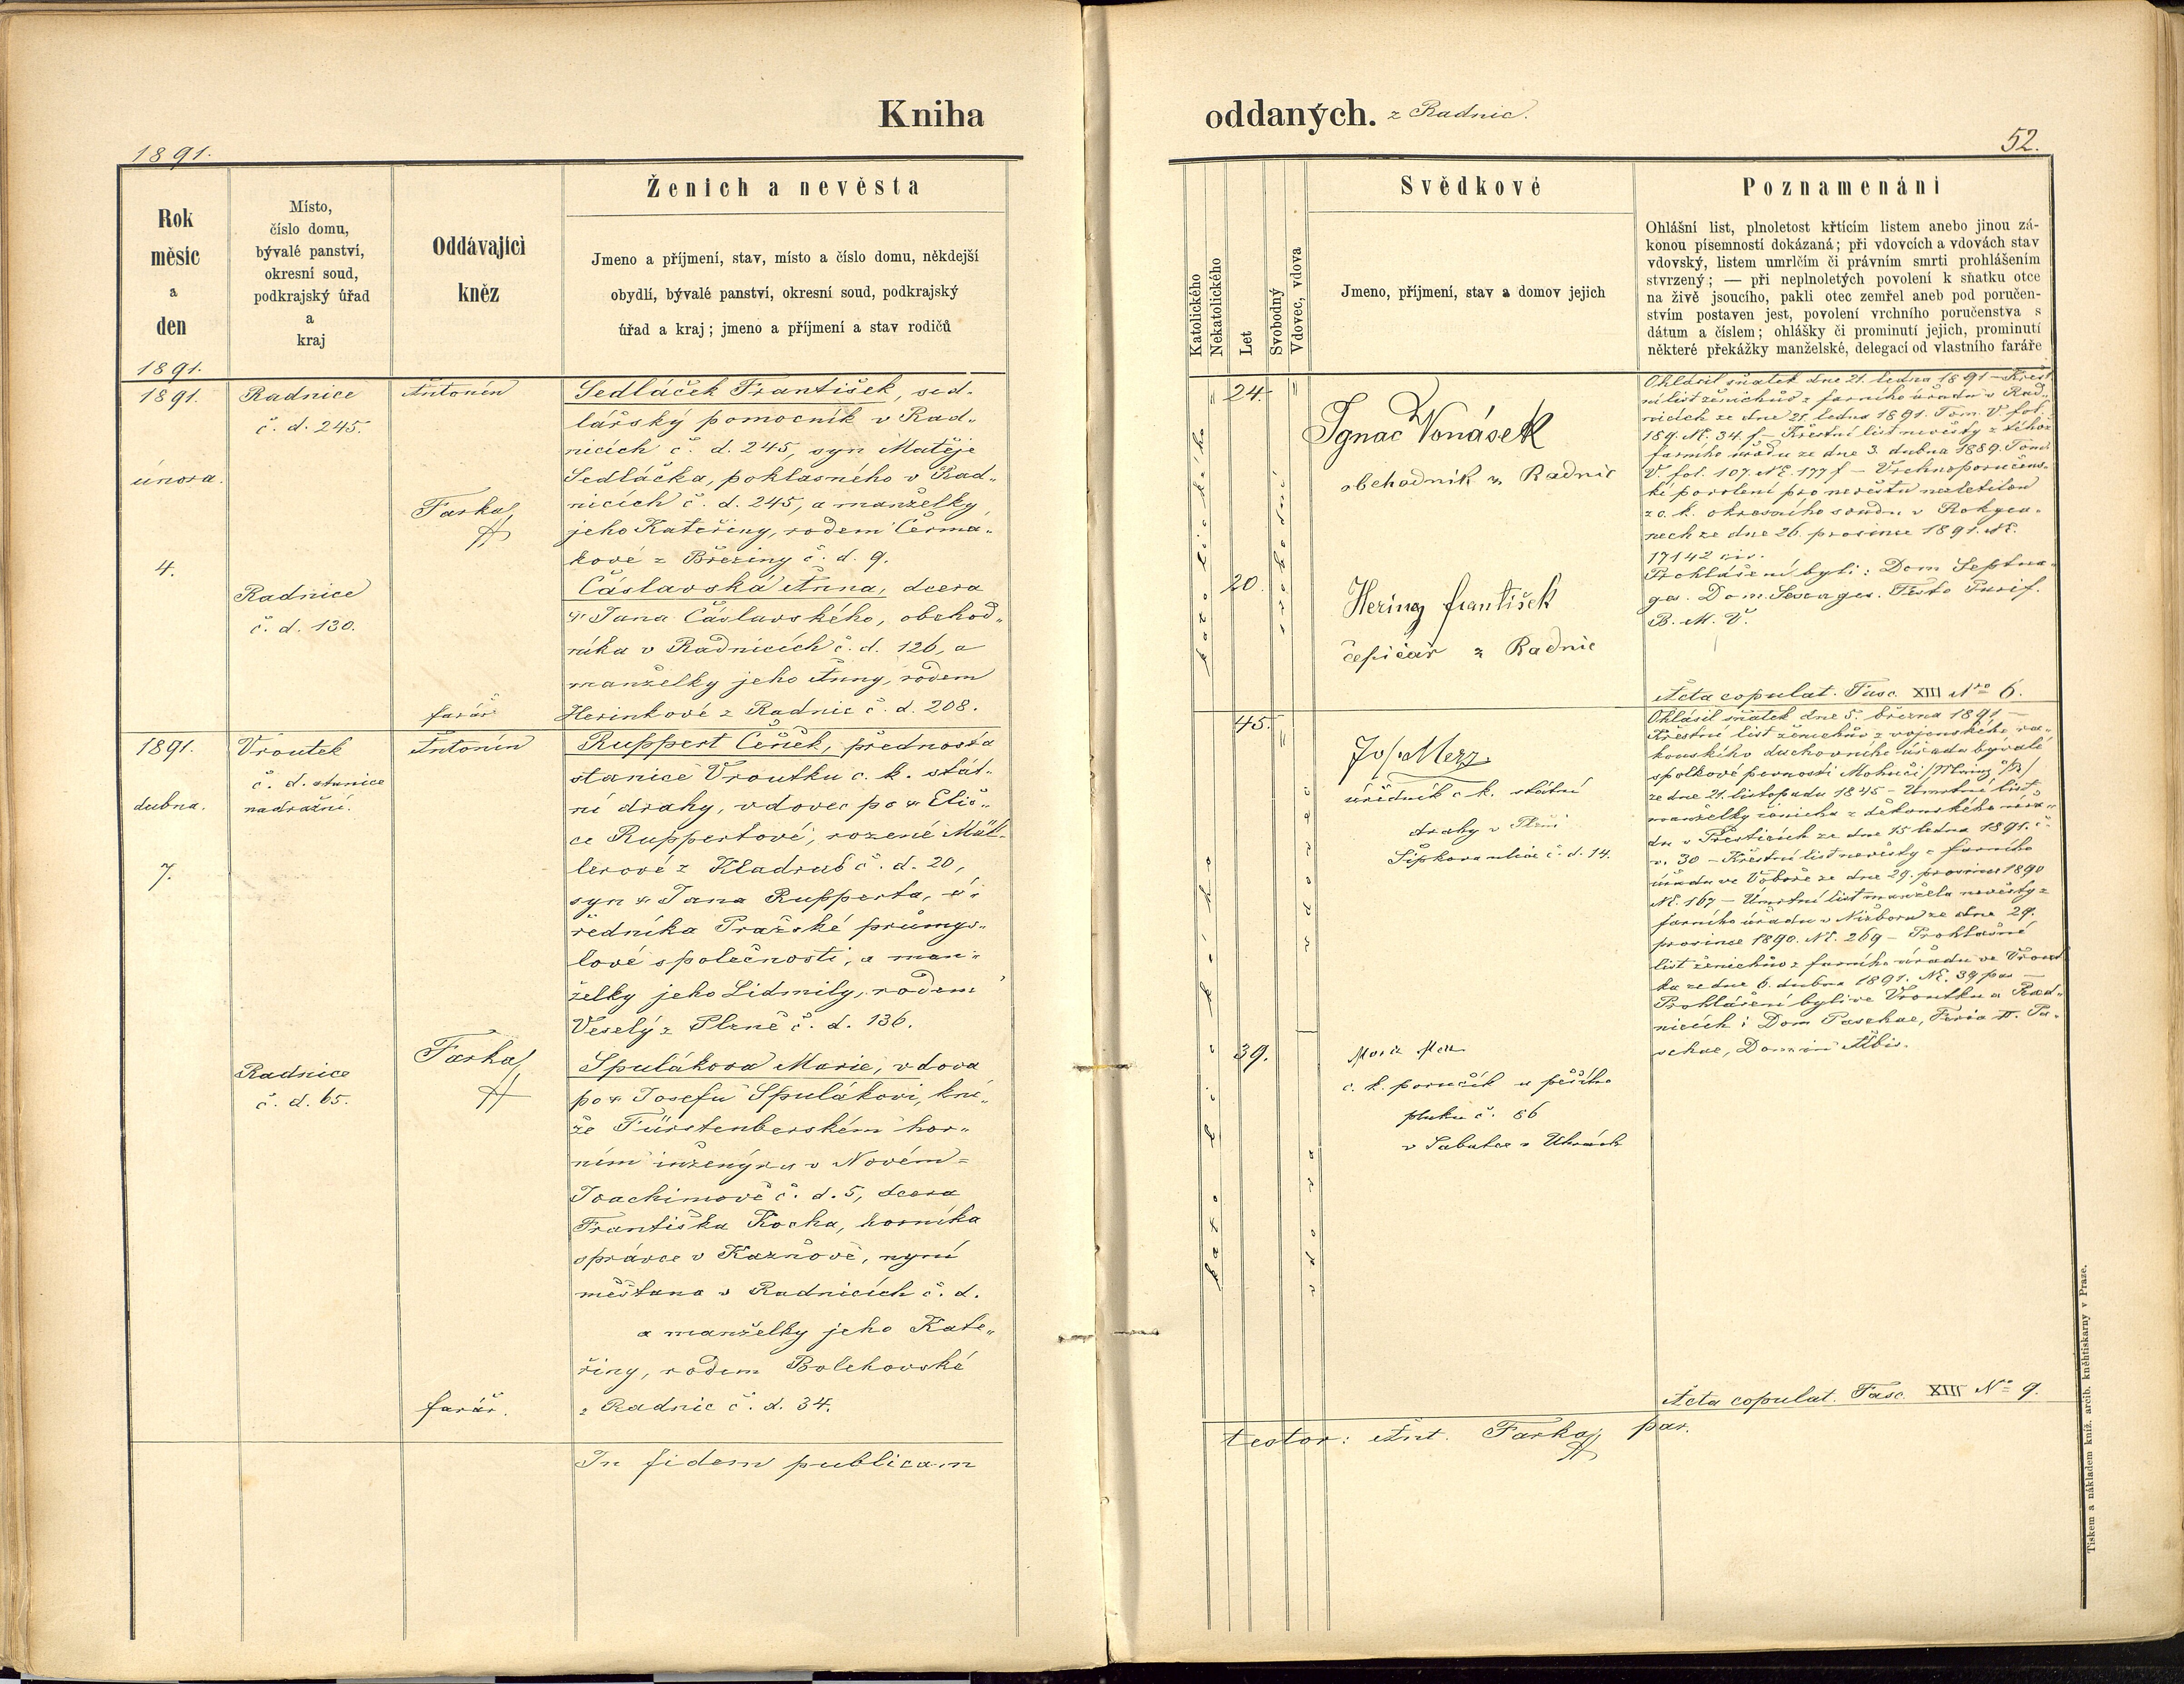 Kniha
1891.
Rok
měsíc
a
den
1891.
Místo,
číslo domu,
bývalé panství,
okresní soud,
podkrajský úřad
a
kraj
Oddávající
kněz
Ženich a nevěsta
Jmeno a příjmení, stav, místo a číslo domu, někdejší
obydlí, bývalé panství, okresní soud, podkrajský
úřad a kraj; jmeno a příjmení a stav rodičů
1891.
února.
4.
Radnice
č. d. 245.
Radnice
č. d. 130.
Antonín
Farka
farář
Sedláček František, sed„
lářský pomocník v Rad„
nicích č. d. 245, syn Matěje
Sedláčka, poklasného v Rad„
nicích č. d. 245, a manželky
jeho Kateřiny, rodem Čermá„
kové z Březiny č. d. 9.
Čáslavská Anna, dcera
Jana Čáslavského, obchod„
níka v Radnicích č. d. 126, a
manželky jeho Anny, rodem
Herinkové z Radnic č. d. 208.
1891.
dubna.
7.
Vroutek
č. d. stanice
nadražní.
Radnice
č. d. 65.
Antonín
Farka
farář.
Ruppert Čeněk, přednosta
stanice Vroutku c. k. stát„
ní drahy, vdovec po Eliš„
ce Ruppertové, rozené Mül„
lerové z Kladrub č. d. 20,
syn Jana Rupperta, ú„
ředníka Pražské průmys„
lové společnosti, a man„
želky jeho Lidmily, rodem
Veselý z Plzně č. d. 136.
Spulákova Marie, vdova
po Josefu Spulákovi, kní„
že Fürstenberském hor„
ním inženýru v Novém=
Joachimově č. d. 5, dcera
Františka Kocha, horníka
správce v Kaznově, nyní
měšťana v Radnicích č. d.
a manželky jeho Kate„
řiny, rodem Bolehovské
z Radnic č. d. 34.
In fidem publicam
oddaných. z Radnic.
52.
Katolického
Nekatolického
Let
Svobodný
Vdovec, vdova
Svědkové
Jmeno, příjmení, stav a domov jejich
Poznamenání
Ohlášní list, plnoletost křtícím listem anebo jinou zá-
konou písemností dokázaná; při vdovcích a vdovách stav
vdovský, listem umrlčím či právním smrti prohlášením
stvrzený; — při neplnoletých povolení k sňatku otce
na živě jsoucího, pakli otec zemřel aneb pod poručen-
stvím postaven jest, povolení vrchního poručenstva s
dátum a číslem; ohlášky či prominutí jejich, prominutí
některé překážky manželské, delegací od vlastního faráře
katolického
24.
20.
svobodní
Ignac Vonásek
obchodník z Radnic
Hering František
čepičář z Radnic
Ohlásil sňatek dne 21. ledna 1891 – Křest
ní list ženichův z farního úřadu v Rad„
nicích ze dne 21. ledna 1891. Tom. V fol.
189. Nč. 34. f – Křestní list nevěsty z téhož
farního úřadu ze dne 3. dubna 1889. Tom.
V. fol. 107. Nč. 177 f – Vrchnoporučens„
ké povolení pro nevěstu nezletilou
z c. k. okresního soudu v Rokyca„
nech ze dne 26. prosince 1891. Nč.
17142 civ.
Prohlášeni byli: Dom Septua„
ges. Dom. Sexages. Festo Purif.
B. M. V.
Acta copulat. Fasc. XIII Nro 6.
katolického
45.
39.
vdovec
vdova
Jos. Merz
úředník c k. státní
drahy v Plzni
Šípkova ulice č. d. 14.
c. k. poručík u pěšího
pluku č. 86
v Sabatce v Uhrách
Ohlásil sňatek dne 5. března 1891 –
Křestní list ženichův z vojenského ra„
kouského duchovního úřadu bývalé
spolkové pevnosti Mohuči
ze dne 21. listopadu 1845 – Umrtní list
manželky ženicha z děkanského úřa„
du v Přešticích ze dne 15 ledna 1891. č.
v. 30 – Křestní list nevěsty z farního
úřadu ve ze dne 29. prosince 1890
Nč. 167 – Úmrtní list manžela nevěsty z
farního úřadu v Nižboru ze dne 29.
prosince 1890. Nč. 269 – Prohlašné
list ženichův z farního úřadu ve Vrout
ku ze dne 6. dubna 1891. Nč. 39 par –
Prohlášeni byli ve Vroutku a Rad„
nicích: Dom Paschae, Feria II. Pa„
schae, Domin Albis.
Acta copulat. Fasc. XIII No 9.
testor: Ant. Farka par.
Tiskem a nákladem kníž. arcib. kněhtiskarny v Praze.